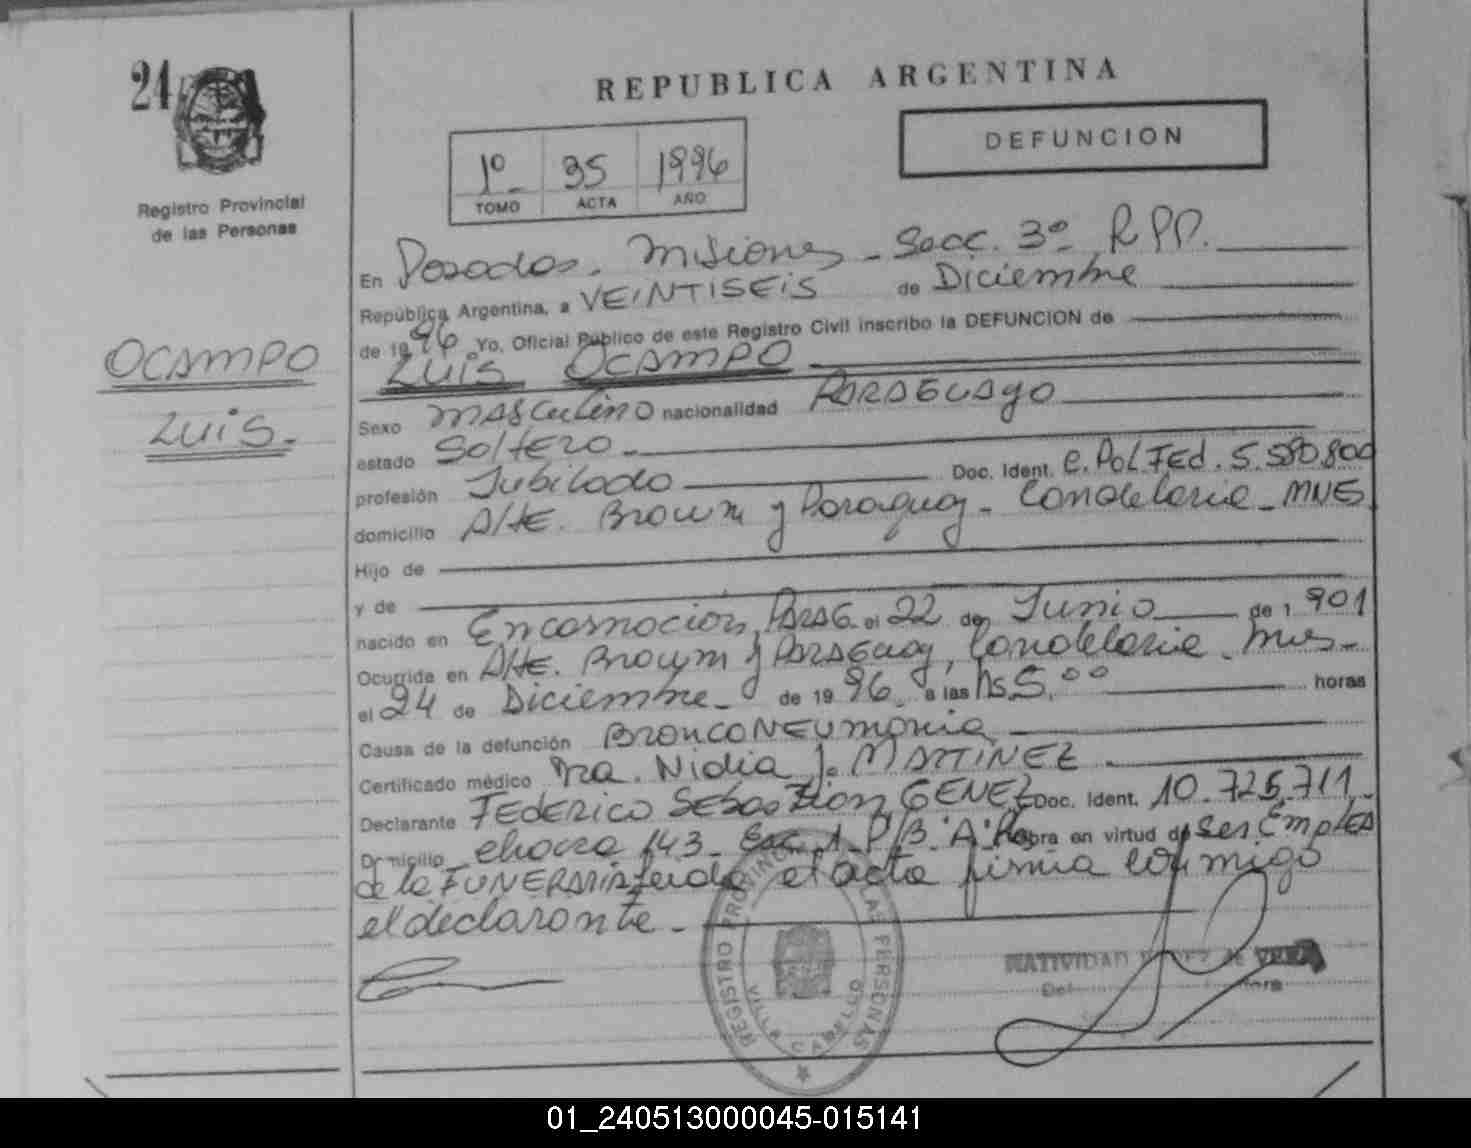 24
REPUBLICA ARGENTINA
DEFUNCION
1º 35 1996
TOMO ACTA AÑO
Registro Provincial
de las Personas
OCAMPO
LUIS.
En Posadas. Misiones - Secc. 3º R.P.P.
República Argentina, a VEINTISEIS de Diciembre
de 1996 Yo, Oficial Público de este Registro Civil inscribo la DEFUNCION de
LUIS OCAMPO
Sexo Masculino nacionalidad PARAGUAYO
estado SOLTERO.
profesión Jubilado Doc. Ident. C. POL FEd. 5.580.800
domicilio Alte. Brown y Paraguay - Candelaria - MNES
Hijo de
y de
nacido en Encarnación, PARAG. el 22 de Junio de 1.901
Ocurrida en Alte. Brown y PARAGUAY, Candelaria. Mns.
el 24 de Diciembre de 1996 a las hs. 5.00 horas
Causa de la defunción BRONCONEUMONIA
Certificado médico Dra. Nidia J. MARTINEZ
Declarante FEDERICO SEBASTIAN GENEZ Doc. Ident. 10.725.711
Domicilio chacra 143 - Esc. 1 - P/B "A" Pdas obra en virtud de Ser Emplead
de la FUNERARIA Leida el acta firma conmigo
el declarante.
REGISTRO PROVINCIAL DE LAS PERSONAS
VILLA CABELLO
NATIVIDAD de VERA
01_240513000045-015141